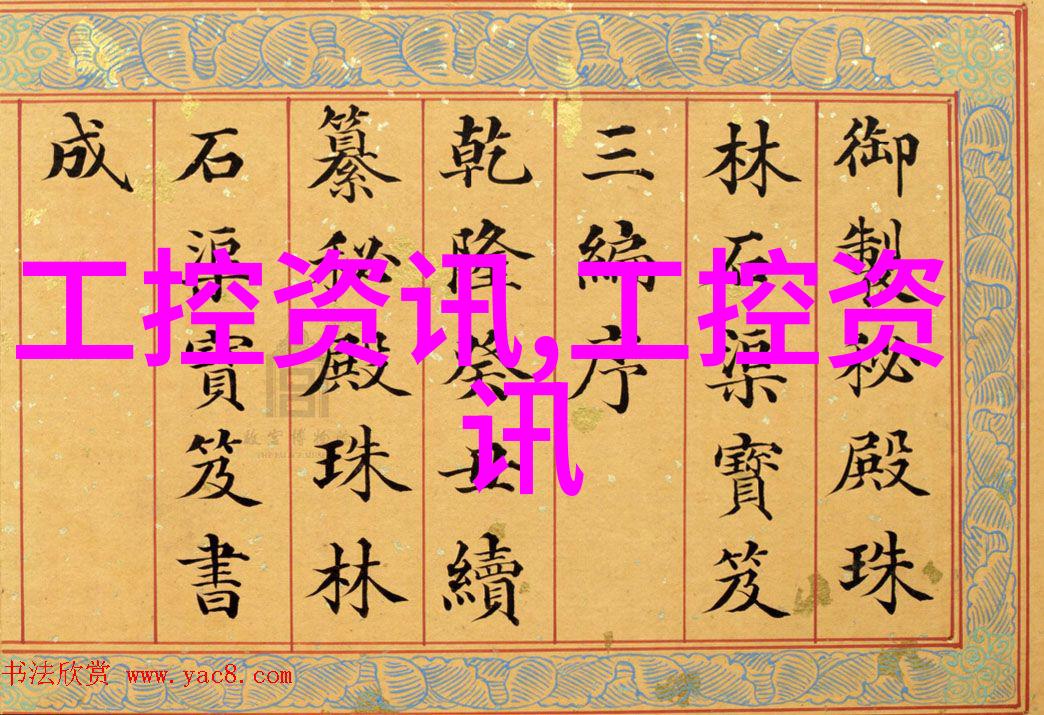 御製秘殿珠
林石渠寶笈
三編序
乾隆癸丑續
纂秘殿珠林
石渠寶笈書
成
工控资讯,工控资
讯
故宫博物院
书法欣赏 www.yac8.com